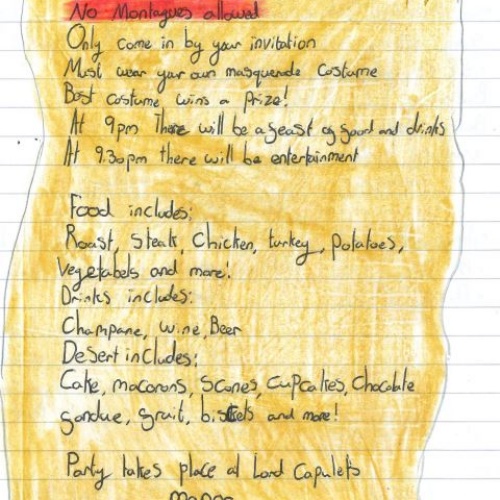 No Montagues allowed
Only come in by your invitation
Must wear your own masquerade costume
Best costume wins a Prize!
At 9pm There will be a feast of food and drinks
At 9.30pm there will be entertainment
Food includes:
Roast, Steak, Chicken, turkey, potatoes,
Vegetabels and more!
Drinks includes:
Champane, wine, Beer
Desert includes:
Cake, macarons, Scones, cupcakes, Chocolate
fondue, fruit, and more!
Party takes place at Lord Capulets